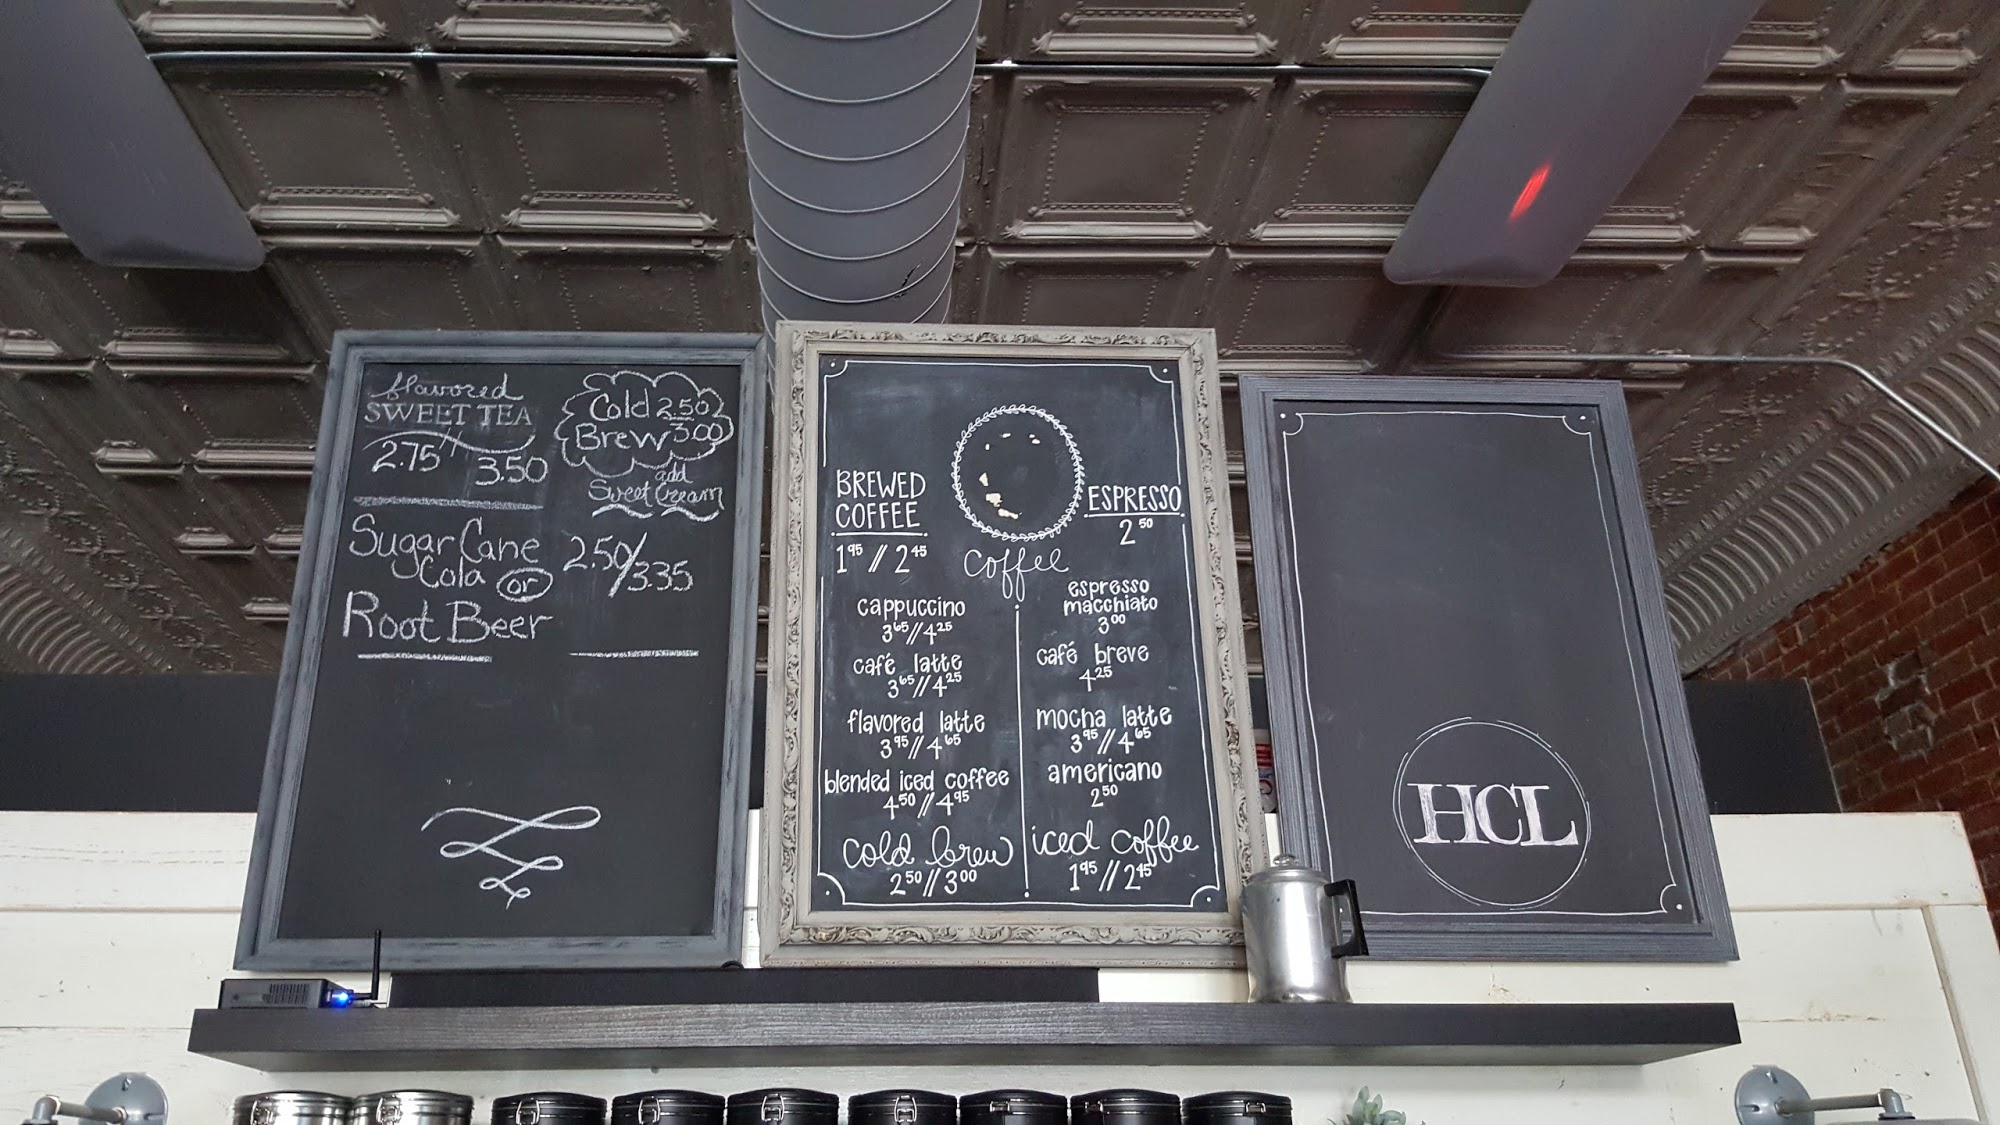 flavored
SWEET TEA
2.75 // 3.50
Cold 2.50
Brew 3.00
add
Sweet Cream
Sugar Cane
Cola or
Root Beer
2.50/3.35
coffee
BREWED
COFFEE
1.95 // 2.45
cappuccino
3.65 // 4.25
café latte
3.65 // 4.25
flavored latte
3.95 // 4.65
blended iced coffee
4.50 // 4.95
cold brew
2.50 // 3.00
ESPRESSO
2.50
espresso
macchiato
3.00
café breve
4.25
mocha latte
3.95 // 4.65
americano
2.50
iced coffee
1.95 // 2.45
HCL